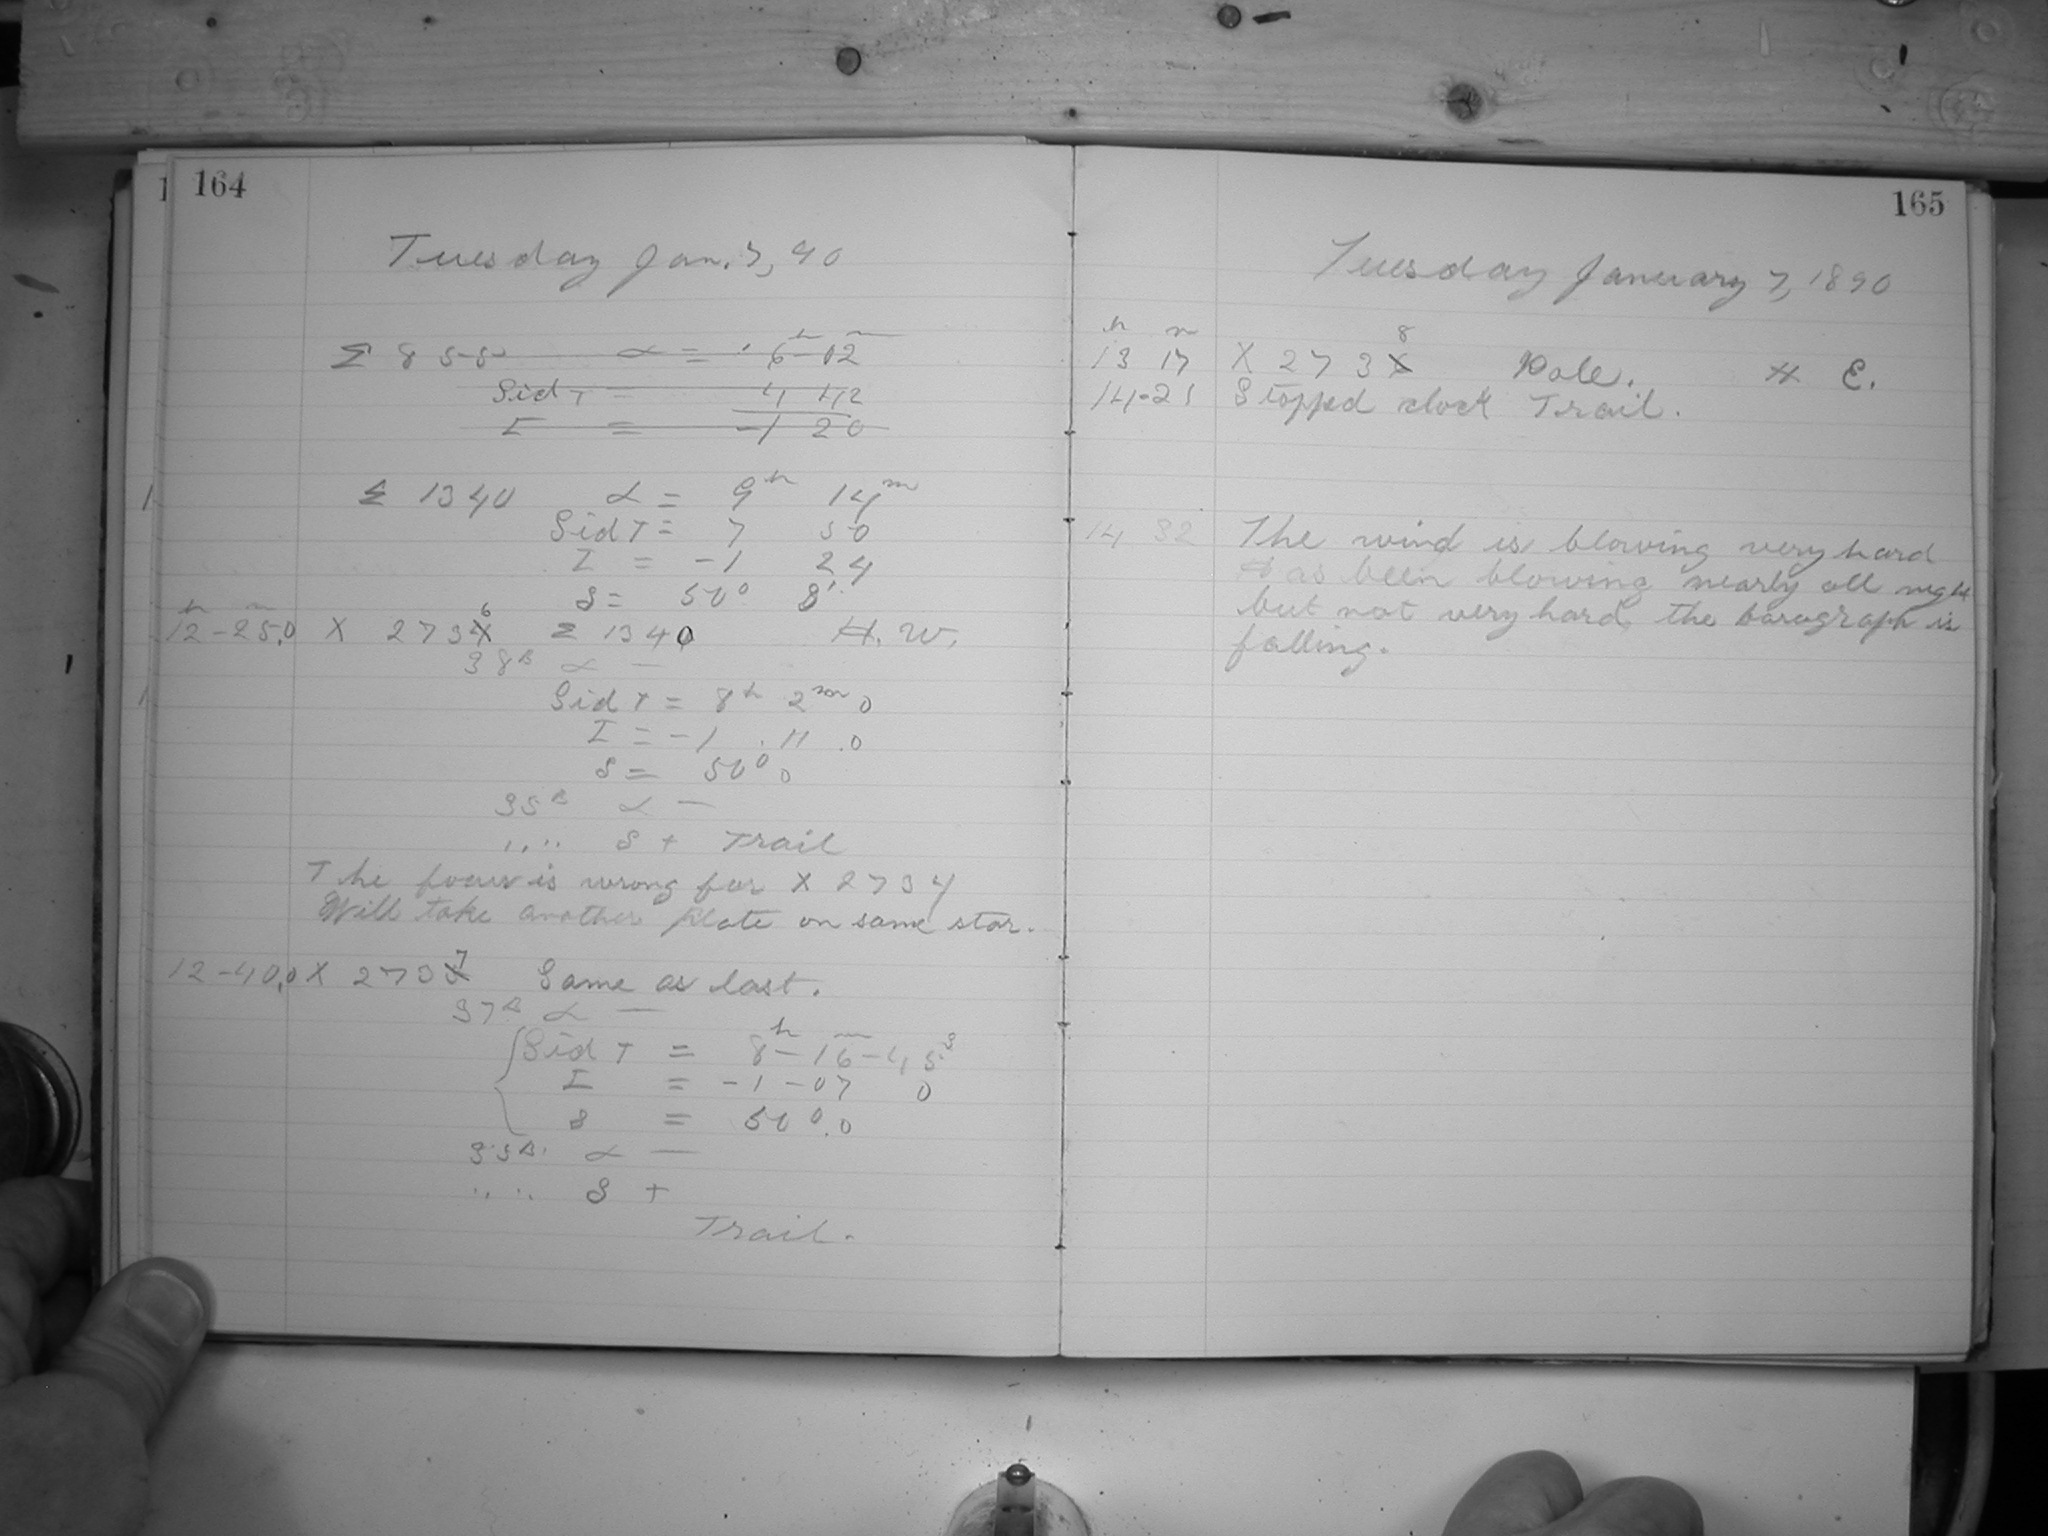 164
Tuesday Jan. 7, 90
Σ 855 α = 6h 02m
Sid T = 4 42
I = -1 20
Σ 1340 α = 9h 14m
Sid T = 7 50
I = -1 24
δ = 50° 8'
h m
12-25.0 X 2734 6 Σ 1340 H. W.
38B α -
Sid T = 8h 2m 0
I = -1 .11 .0
δ = 50° 0
35B α -
" " δ + Trail
The focus is wrong for X 2734
Will take another plate on same star.
12-40.0 X 2735 7 Same as last.
37B α -
Sid T = 8h-16m-45s
I = -1-07 0
δ = 50°.0
35B. α -
" " δ +
Trail.
165
Tuesday January 7, 1890
h m
13 17 X 273 8 Pole. H E.
14-21 Stopped clock Trail.
14 32 The wind is blowing very hard
Has been blowing nearly all night
but not very hard, the barograph is
falling.